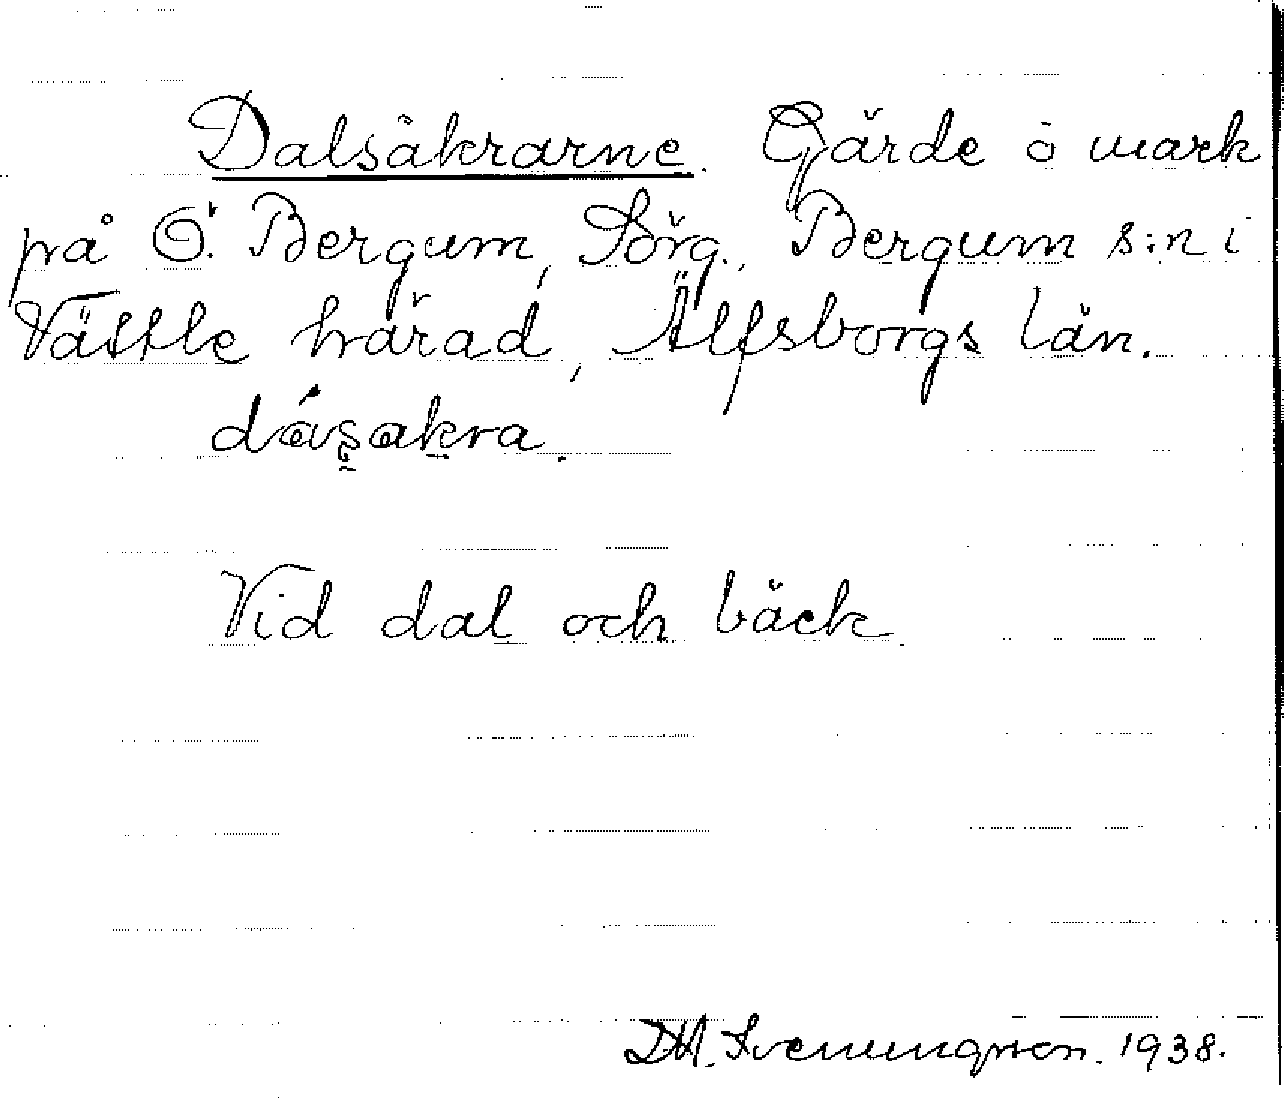 Dalsåkrarne. Gärde å mark
på Ö. Bergum, Sörg., Bergum s:n i
Vättle härad, Älfsborgs län.
dásakra.
Vid dal och bäck.
1938.